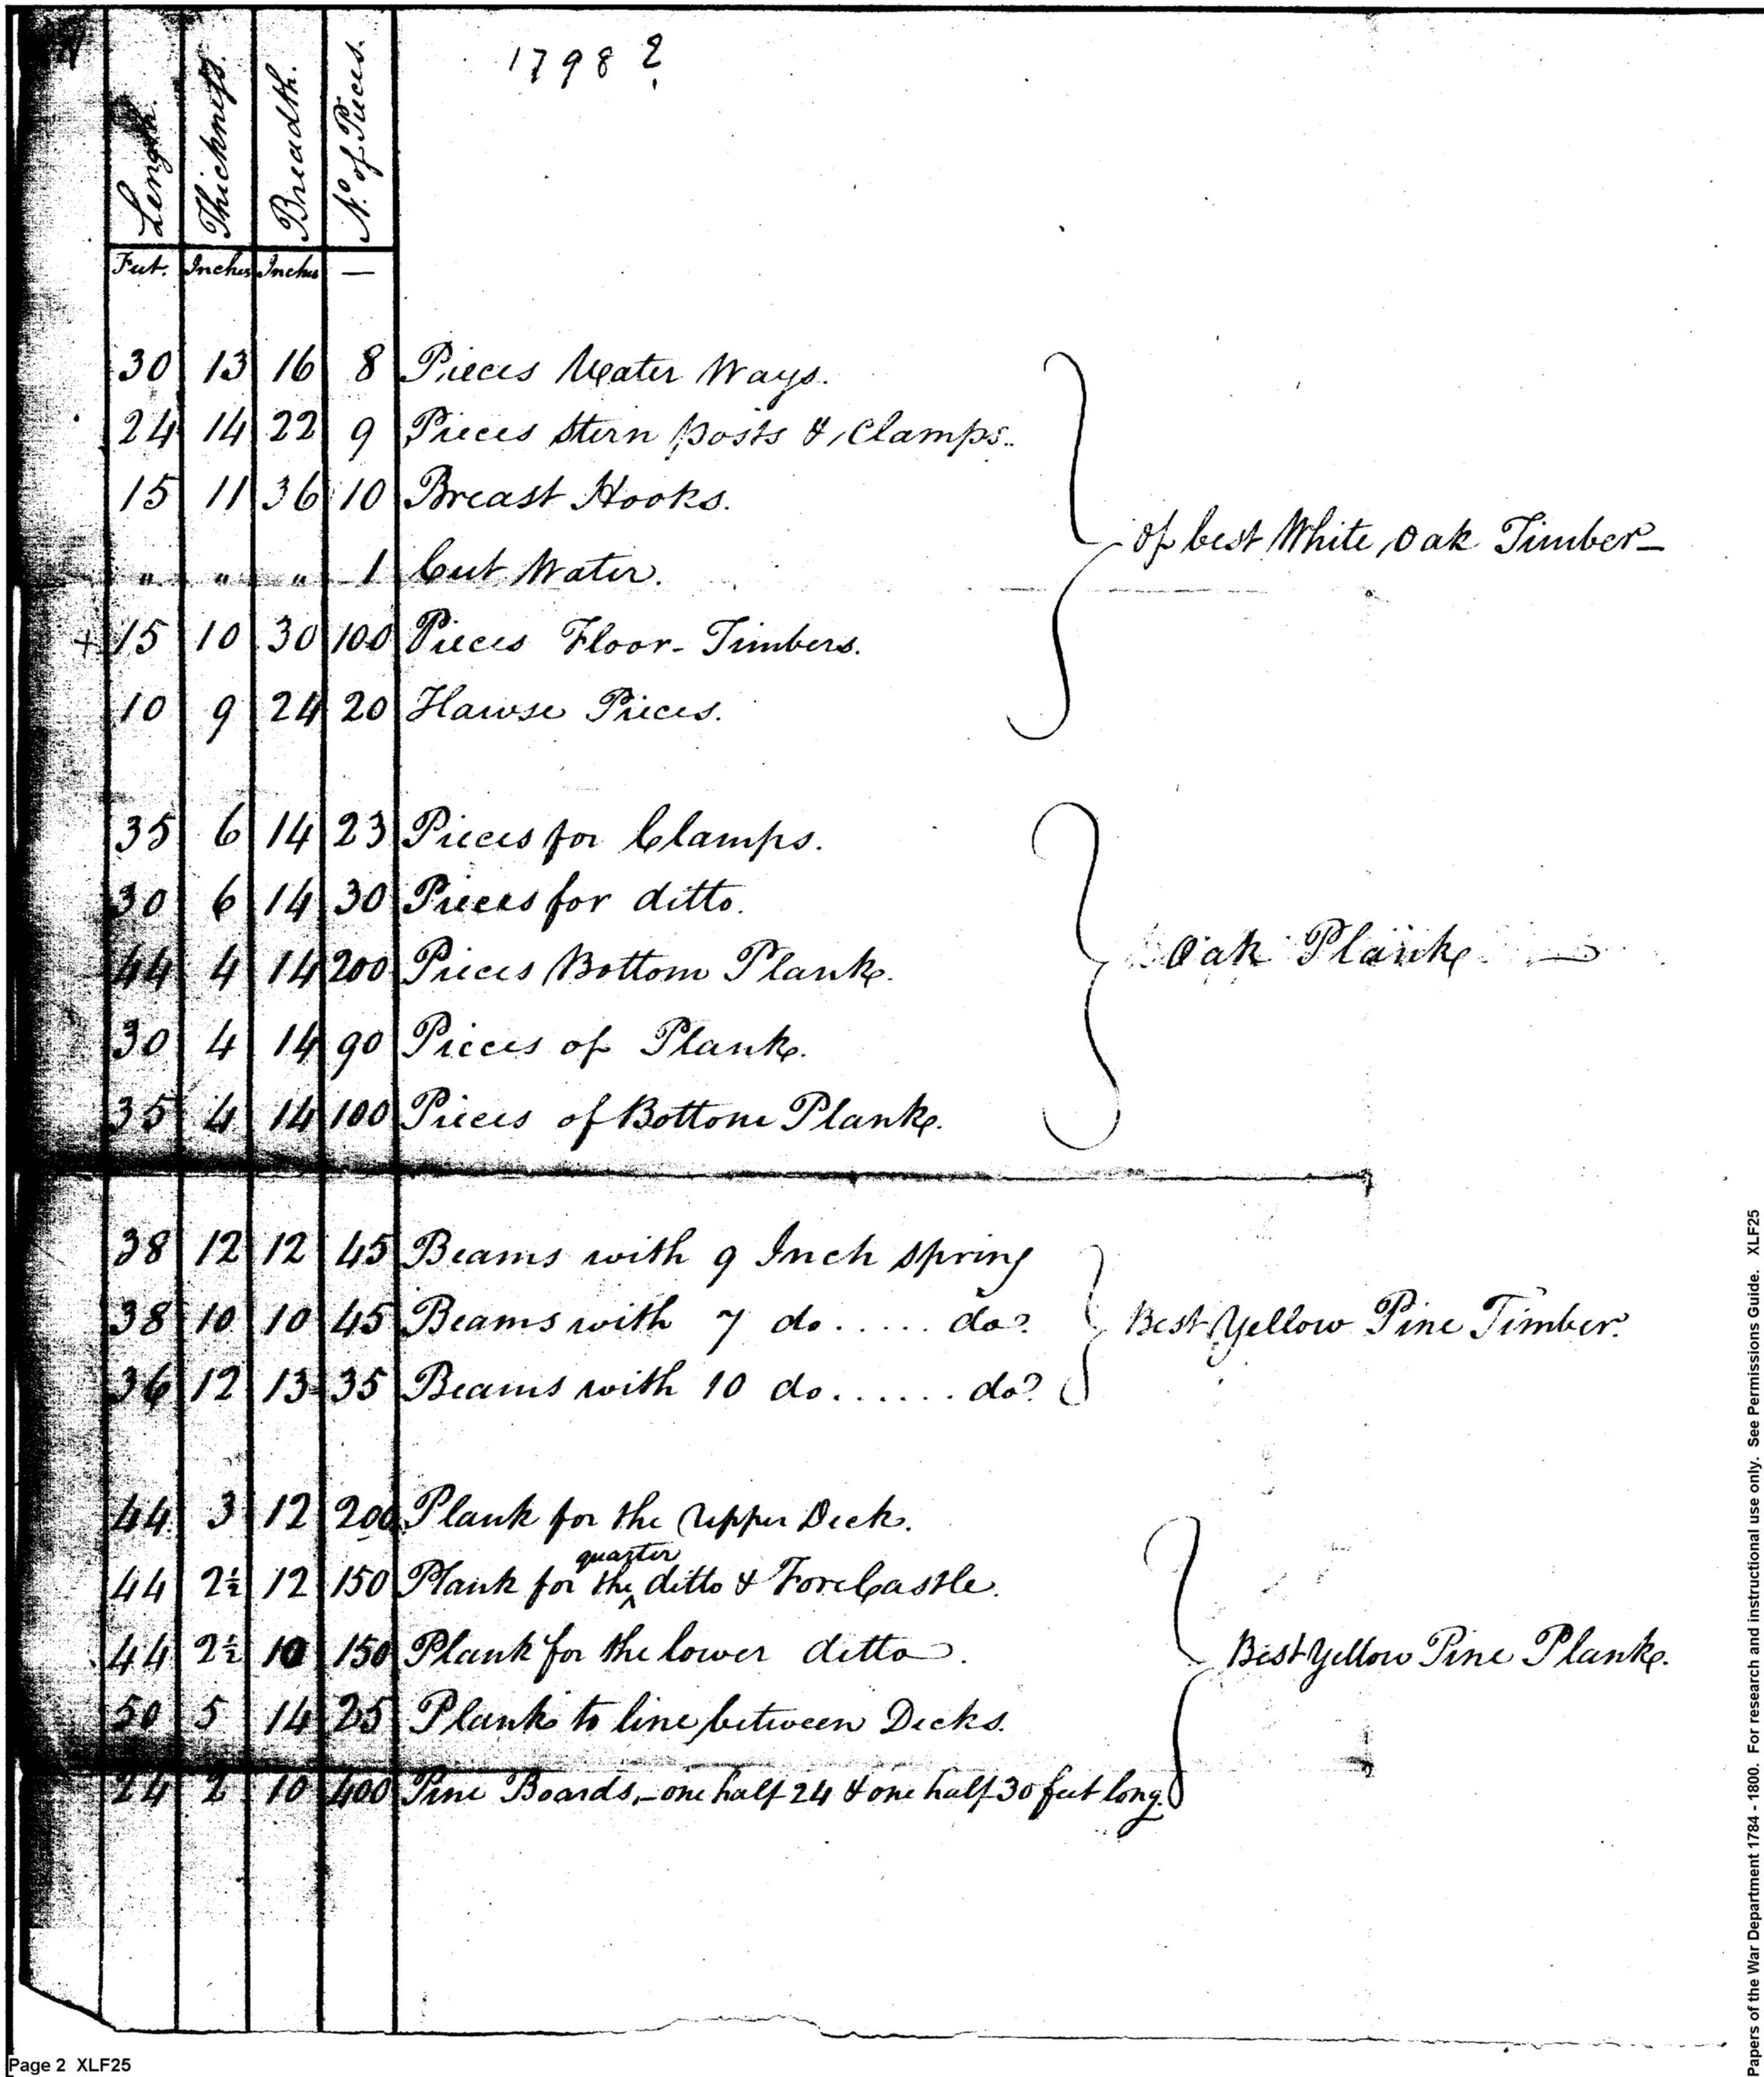 1798?
Length. Thickness. Breadth. No. of Pieces.
Feet. Inches Inches —
30 13 16 8 Pieces Water Ways.
24 14 22 9 Pieces Stern posts & Clamps.
15 11 36 10 Breast Hooks.
" " " 1 Cut Water.
of best White Oak Timber—
+ 15 10 30 100 Pieces Floor-Timbers.
10 9 24 20 Hawse Pieces.
35 6 14 23 Pieces for Clamps.
30 6 14 30 Pieces for ditto.
44 4 14 200 Pieces Bottom Plank.
Oak Plank —
30 4 14 90 Pieces of Plank.
35 4 14 100 Pieces of Bottom Plank.
38 12 12 45 Beams with 9 Inch spring
38 10 10 45 Beams with 7 do ..... do?
Best Yellow Pine Timber.
36 12 13 35 Beams with 10 do ...... do?
44 3 12 200 Plank for the Upper Deck.
44 2½ 12 150 Plank for the quarter ditto & ForeCastle.
44 2½ 10 150 Plank for the lower ditto.
Best Yellow Pine Plank.
50 5 14 25 Plank to line between Decks.
24 2 10 400 Pine Boards,—one half 24 & one half 30 feet long.
Page 2 XLF25
Papers of the War Department 1784 - 1800. For research and instructional use only. See Permissions Guide. XLF25